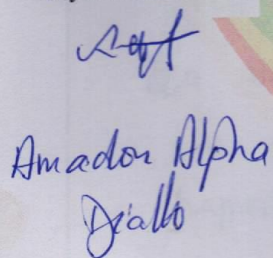 Amadou Alpha
Diallo